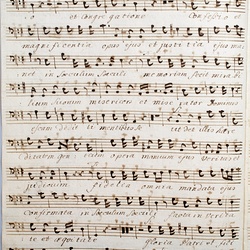 o et congregatione Confessio et
magnificentia opus ejus et justitia ejus ma
net in saeculum saeculi memoriam fecit mirabi
lium suorum misericors et miserator Dominus
escam dedit timentibus se ut det illis here
ditatem gentium opera manuum ejus veritas et
judicium fidelia omnia mandata ejus
confirmata in saeculum saeculi facta in verita
te et aequitate gloria Patri et fili